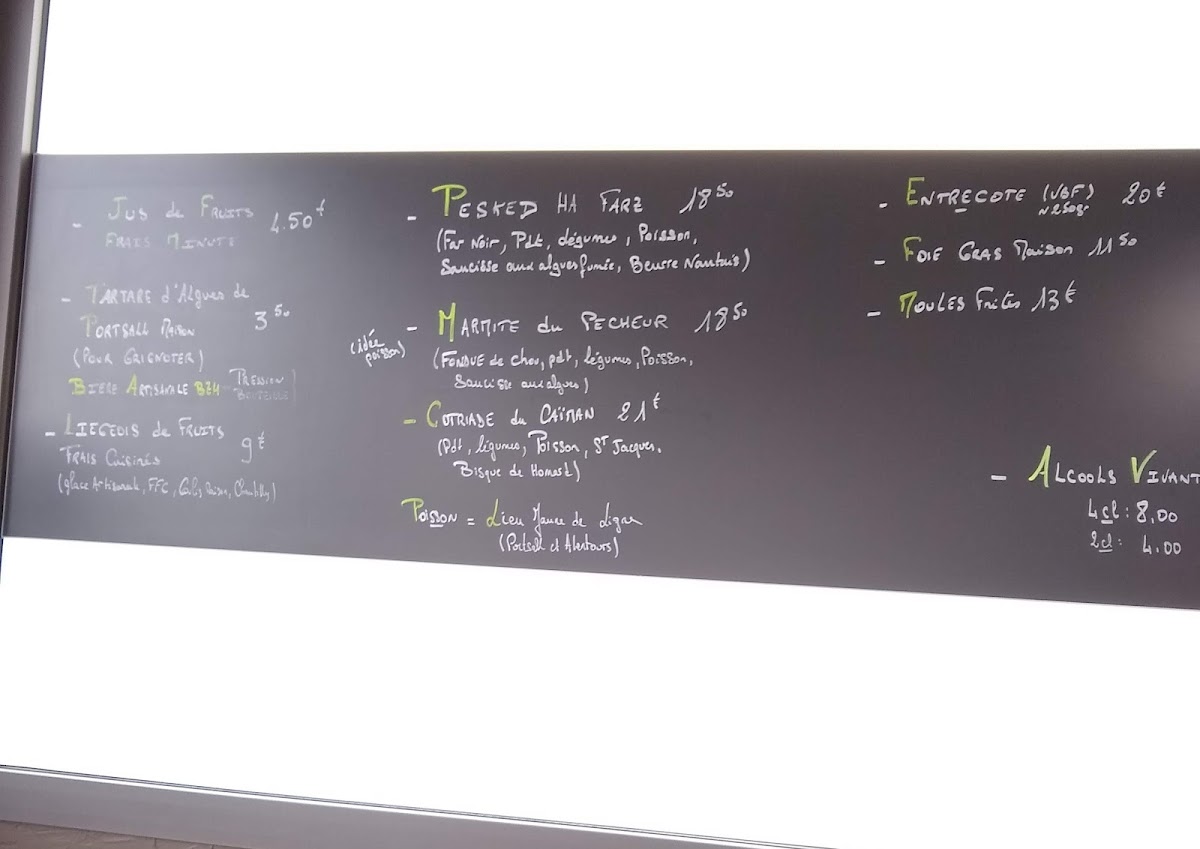 - Jus de Fruits 4.50€
Frais Minute
- Tartare d'Algues de
Portsall Maison 3 50
(Pour Grignoter)
Bière Artisanale BZH Pression
Bouteille
- Liegeois de Fruits
Frais Cuisinés 9€
(glace Artisanale, FFC, Maison, Chantilly)
- Pesked Ha Farz 18 50
(Far Noir, Pdt, légumes, Poisson,
Saucisse aux algues fumée, Beurre Nantais)
(idée
poisson)
- Marmite du Pecheur 18 50
(Fondue de chou, pdt, légumes, Poisson,
Saucisse aux algues)
- Cotriade du Caïman 21€
(Pdt, légumes, Poisson, St Jacques,
Bisque de Homard)
Poisson = Lieu Jaune de Ligne
(Portsall et Alentours)
- Entrecote (VBF) 20€
~250gr
- Foie Gras Maison 11 50
- Moules Frites 13€
- Alcools Vivant
4cl : 8,00
2cl : 4.00